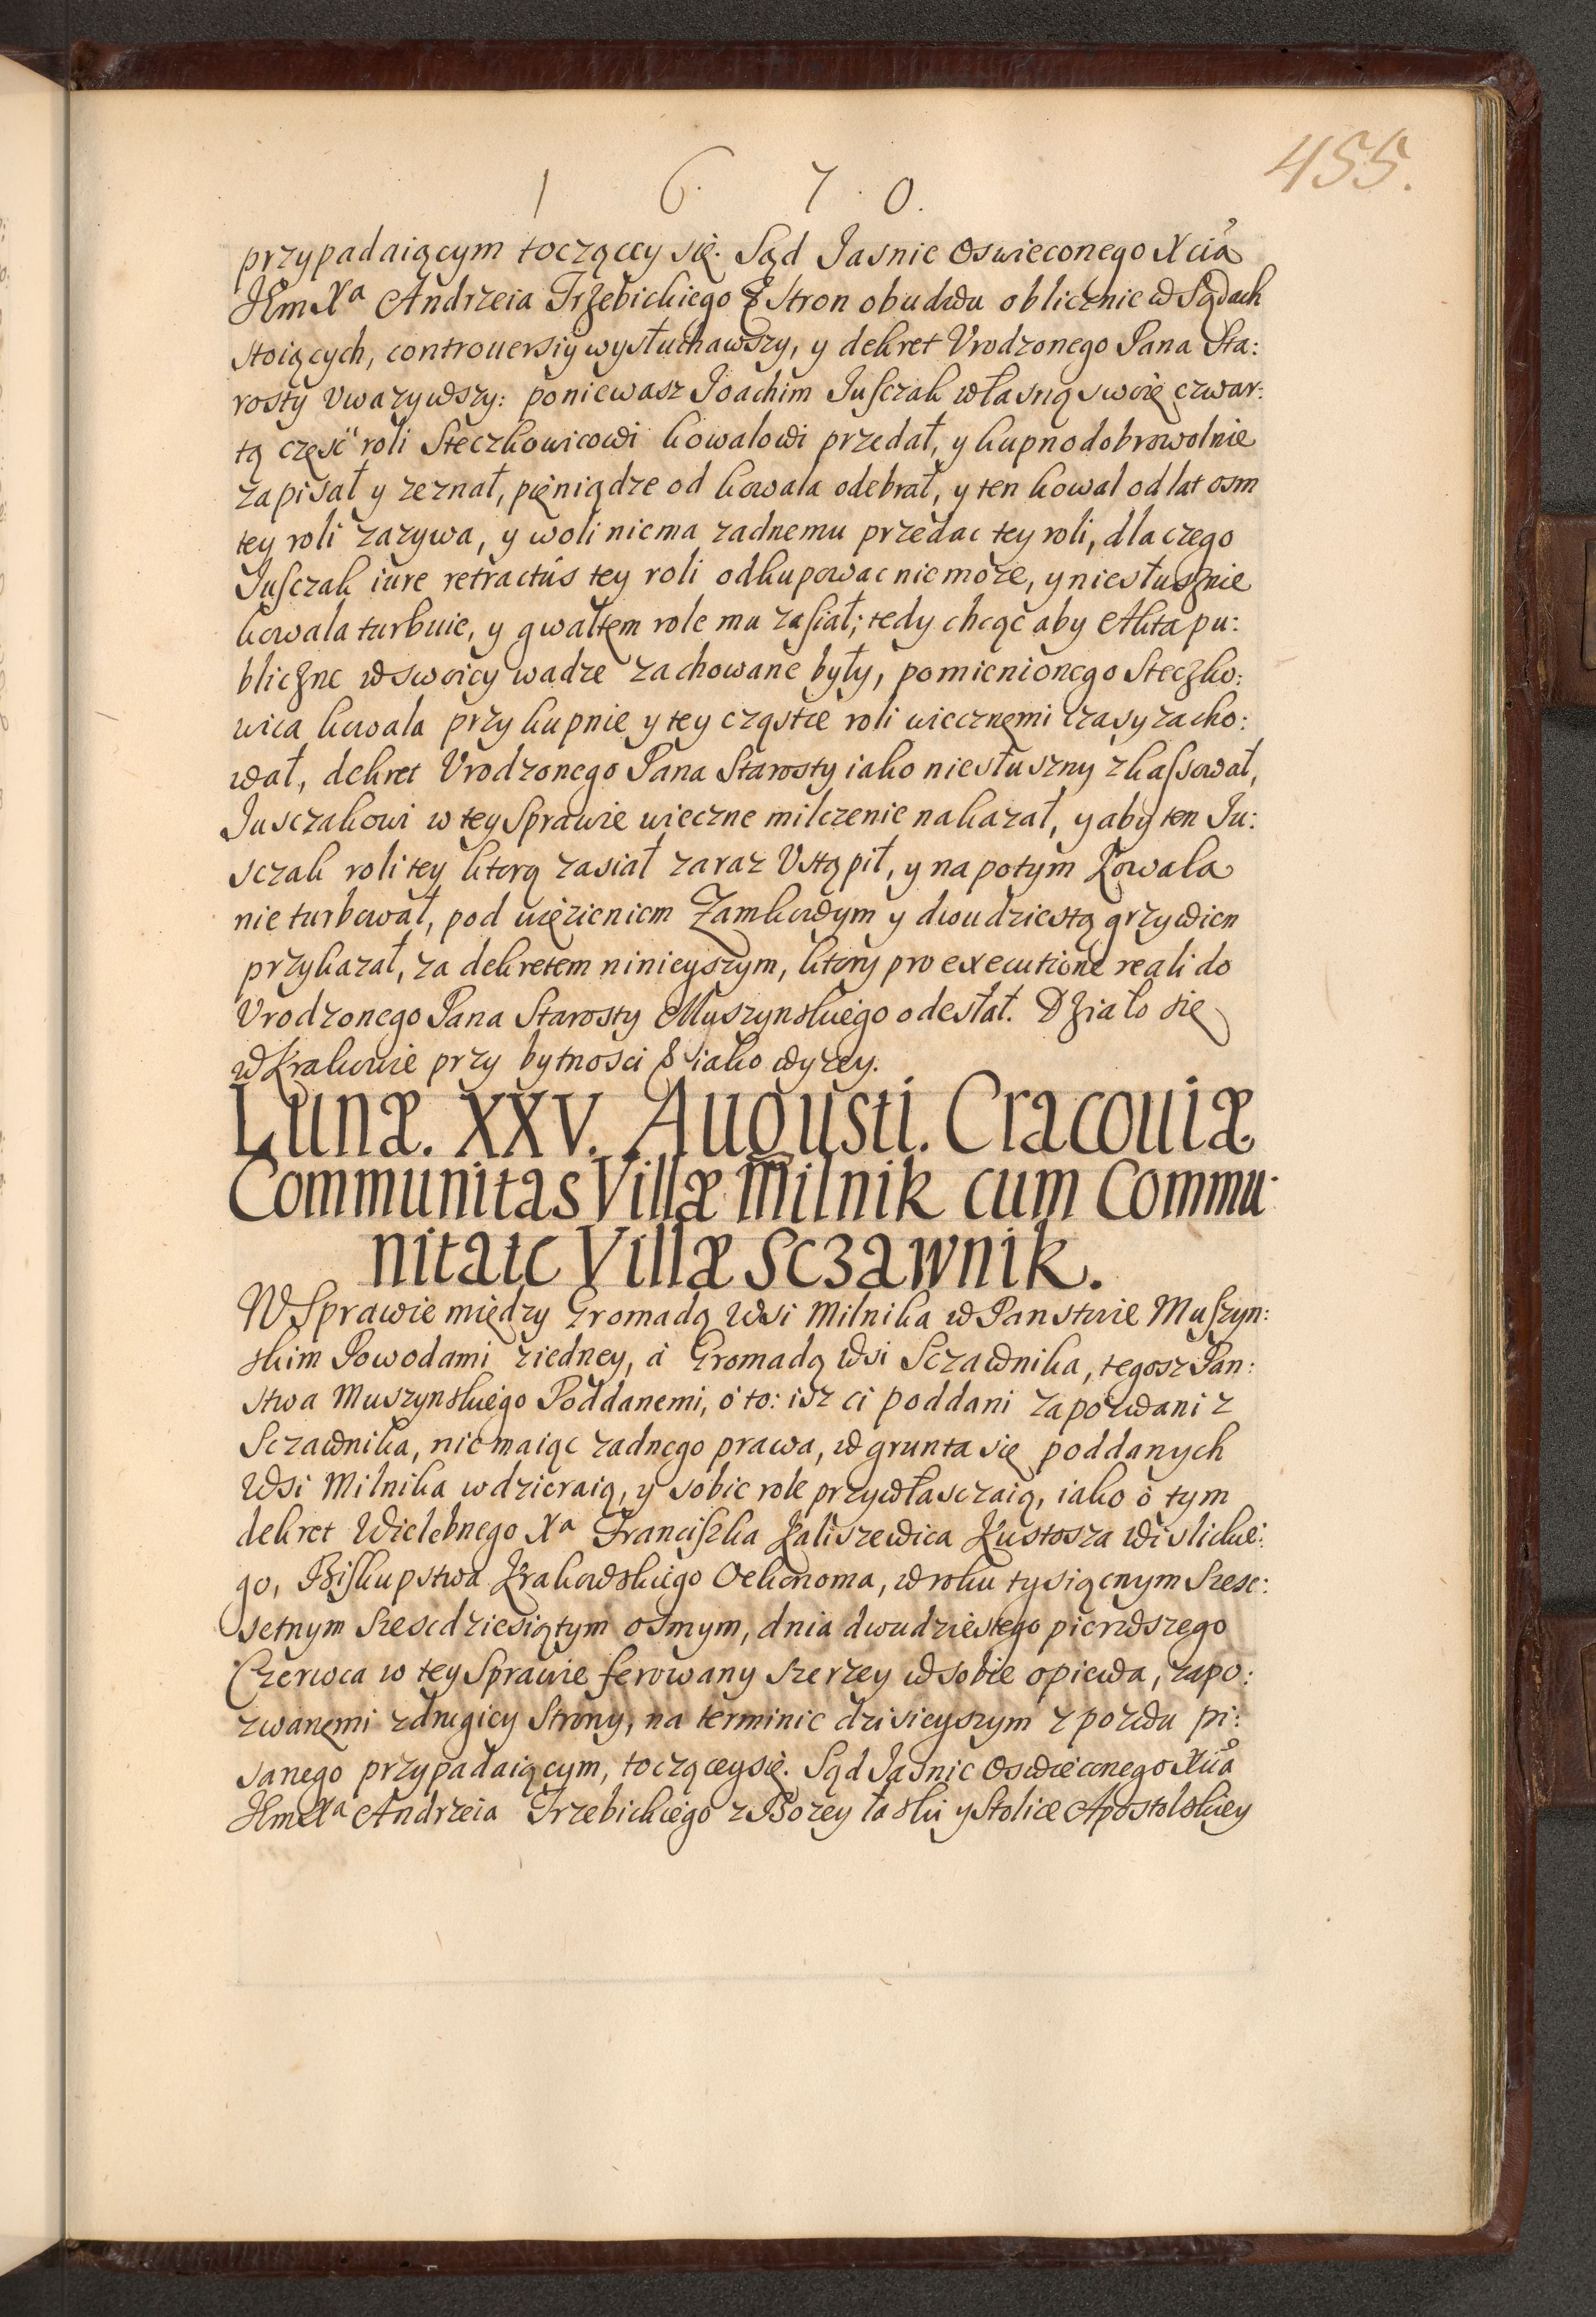 455.
1 6. 7. 0.
przypadaiącym toczącey się. Sąd Jasnie Oswieconego Xcia
JEm Xa Andrzeia Trzebickiego & Stron obudwu oblicznie w Sądach
stoiących, controuersiy wysłuchawszy, y dekret Vrodzonego Pana Sta:
rosty Vwazywszy: poniewasz Joachim Jusczak własną swoię czwar:
tą częsć roli Steczkowicowi kowalowi przedał, y kupno dobrowolnie
zapisał y zeznał, pięniądze od kowala odebrał, y ten kowal od lat osm
tey roli zazywa, y woli niema zadnemu przedac tey roli, dla czego
Jusczak iure retractús tey roli odkupowac nie moze, y niesłusznie
kowala turbuie, y gwałtem role mu zasiał; tedy chcąc aby Akta pu:
bliczne w swoiey wadze zachowane były, pomienionego Steczko:
wica kowala przy kupnie y tey cząstce roli wiecznemi czasy zacho:
wał, dekret Vrodzonego Pana Starosty iako niesłuszny zkassował,
Jusczakowi w tey Sprawie wieczne milczenie nakazał, y aby ten Ju:
sczak roli tey ktorą zasiał zaraz Vstąpił, y na potym Kowala
nie turbował, pod więzieniem Zamkowym y dwudziestą grzywien
przykazał, za dekretem ninieyszym, ktory pro executione reali do
Vrodzonego Pana Starosty Muszynskiego odesłał. Działo się
w Krakowie przy bytnosci & iako wyzey.
Lunæ. XXV. Augusti. Cracouiæ
Communitas Villæ Milnik cum Commu:
nitate Villæ Sczawnik.
W Sprawie między Gromadą Wsi Milnika w Panstwie Muszyn:
skim Powodami ziedney, á Gromadą Wsi Sczawnika, tegosz Pan:
stwa Muszynskiego Poddanemi, o to: isz ci poddani zapozwani z
Sczawnika, nie maiąc zadnego prawa, w grunta się poddanych
Wsi Milnika wdzieraią, y sobie role przywłasczaią, iako ò tym
dekret Wielebnego Xa Franciszka Kaliszewica Kustosza Wislickie:
go, Biskupstwa Krakowskiego Oekonoma, w roku tysiącnym Szesc:
setnym Szescdziesiątym osmym, dnia dwudziestego pierwszego
Czerwca w tey Sprawie ferowany szerzey w sobie opiewa, zapo:
zwanemi zdrugiey Strony, na terminie dzisieyszym z pozwu pi:
sanego przypadaiącym, toczącey się. Sąd Jasnie Oswieconego Xcia
JEm Xa Andrzeia Trzebickiego z Bozey łaski y Stolice Apostolskiey